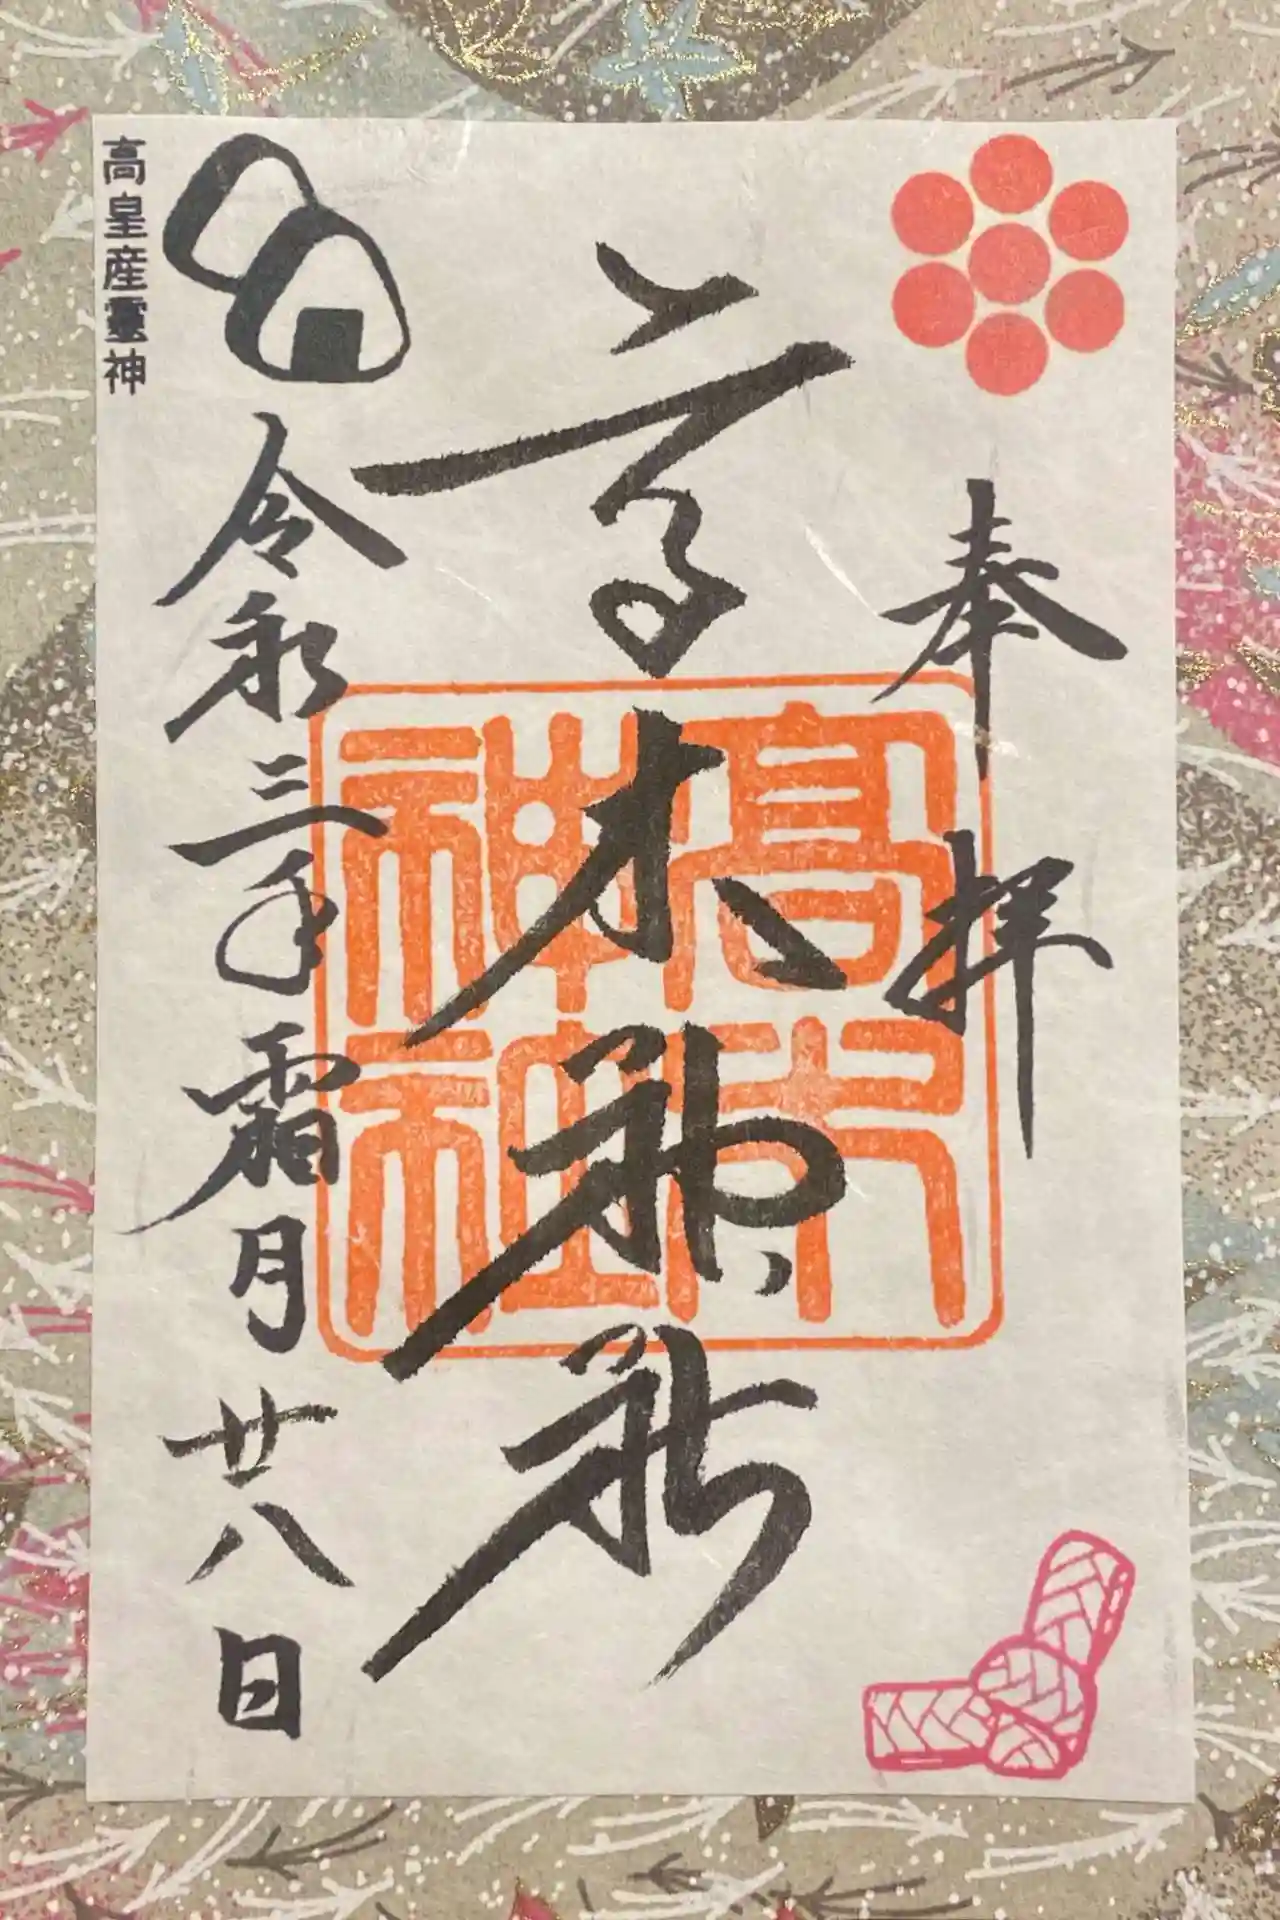 奉拝
高木神社
高木神社
令和三年霜月廿八日
高皇産霊神